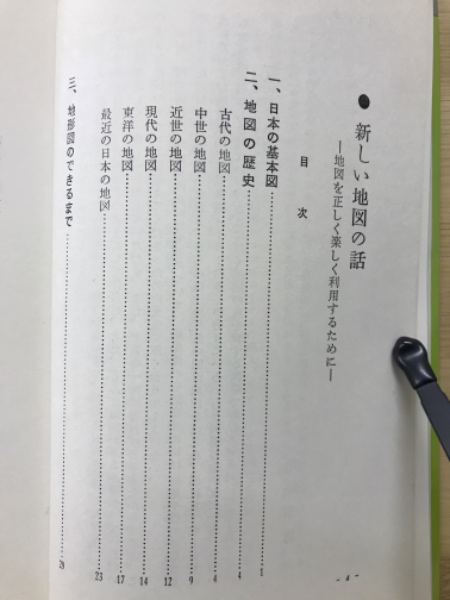 ● 新しい地図の話
―地図を正しく楽しく利用するために―
目次
一、日本の基本図 1
二、地図の歴史 4
古代の地図 4
中世の地図 9
近世の地図 12
現代の地図 14
東洋の地図 17
最近の日本の地図 23
三、地形図のできるまで 29
- 4 -